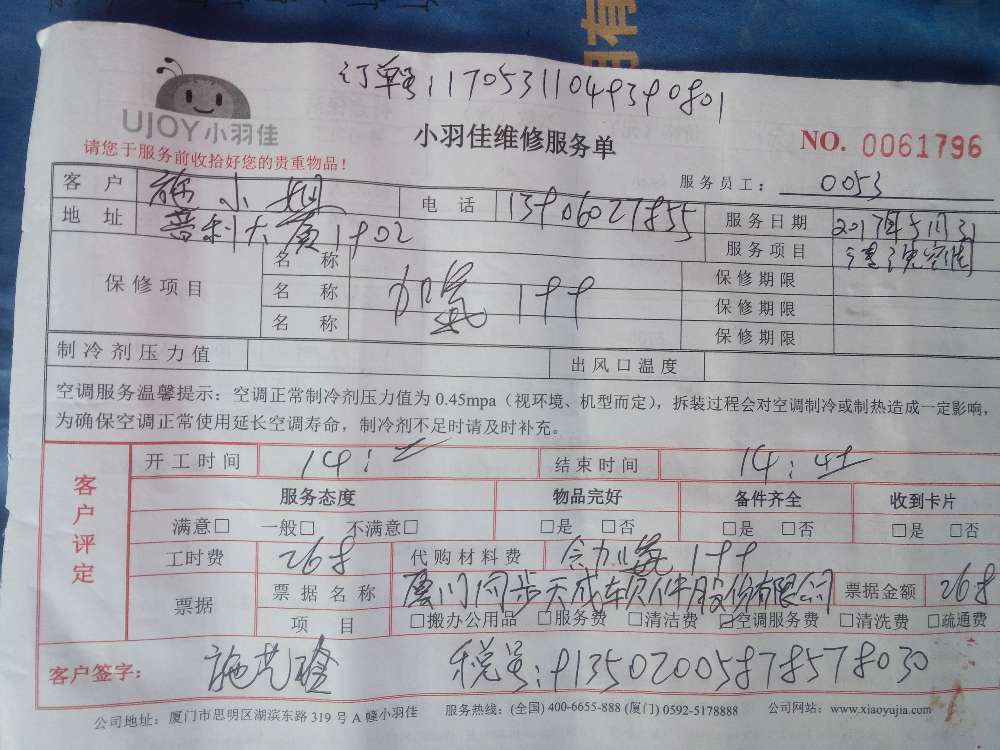 订单号:1705311049390801
UJOY小羽佳
小羽佳维修服务单
NO. 0061796
请您于服务前收拾好您的贵重物品!
服务员工: 0053
客户 施小姐 电话 13906027855 服务日期 2017年5月31
地址 普利大厦1902 服务项目 清洗空调
保修项目 名称 保修期限
名称 加氨 199 保修期限
名称 保修期限
保修期限
制冷剂压力值 出风口温度
空调服务温馨提示:空调正常制冷剂压力值为 0.45mpa(视环境、机型而定),拆装过程会对空调制冷或制热造成一定影响,
为确保空调正常使用延长空调寿命,制冷剂不足时请及时补充。
客户评定
开工时间 14: 结束时间 14:
服务态度 物品完好 备件齐全 收到卡片
满意□ 一般□ 不满意□ □是 □否 □是 □否 □是 □否
工时费 268 代购材料费 含加氨 199
票据 票据名称 厦门同步天成车载件股份有限公司 票据金额 268
项目 □搬办公用品 □服务费 □清洁费 ☑空调服务费 □清洗费 □疏通费
客户签字: 施艺 税号:913502005878578030
公司地址:厦门市思明区湖滨东路 319 号 A 幢小羽佳 服务热线:(全国) 400-6655-888 (厦门) 0592-5178888 公司网站:www.xiaoyujia.com